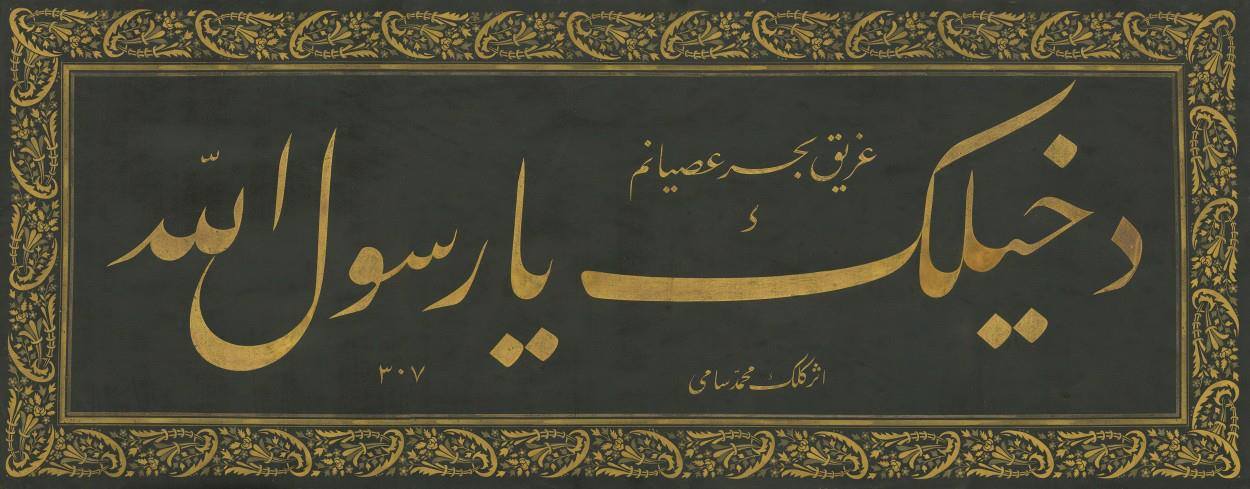 غريق بحر عصيانم
دخيلك يا رسول اللّه
اثر كلك محمّد سامى
٣٠٧